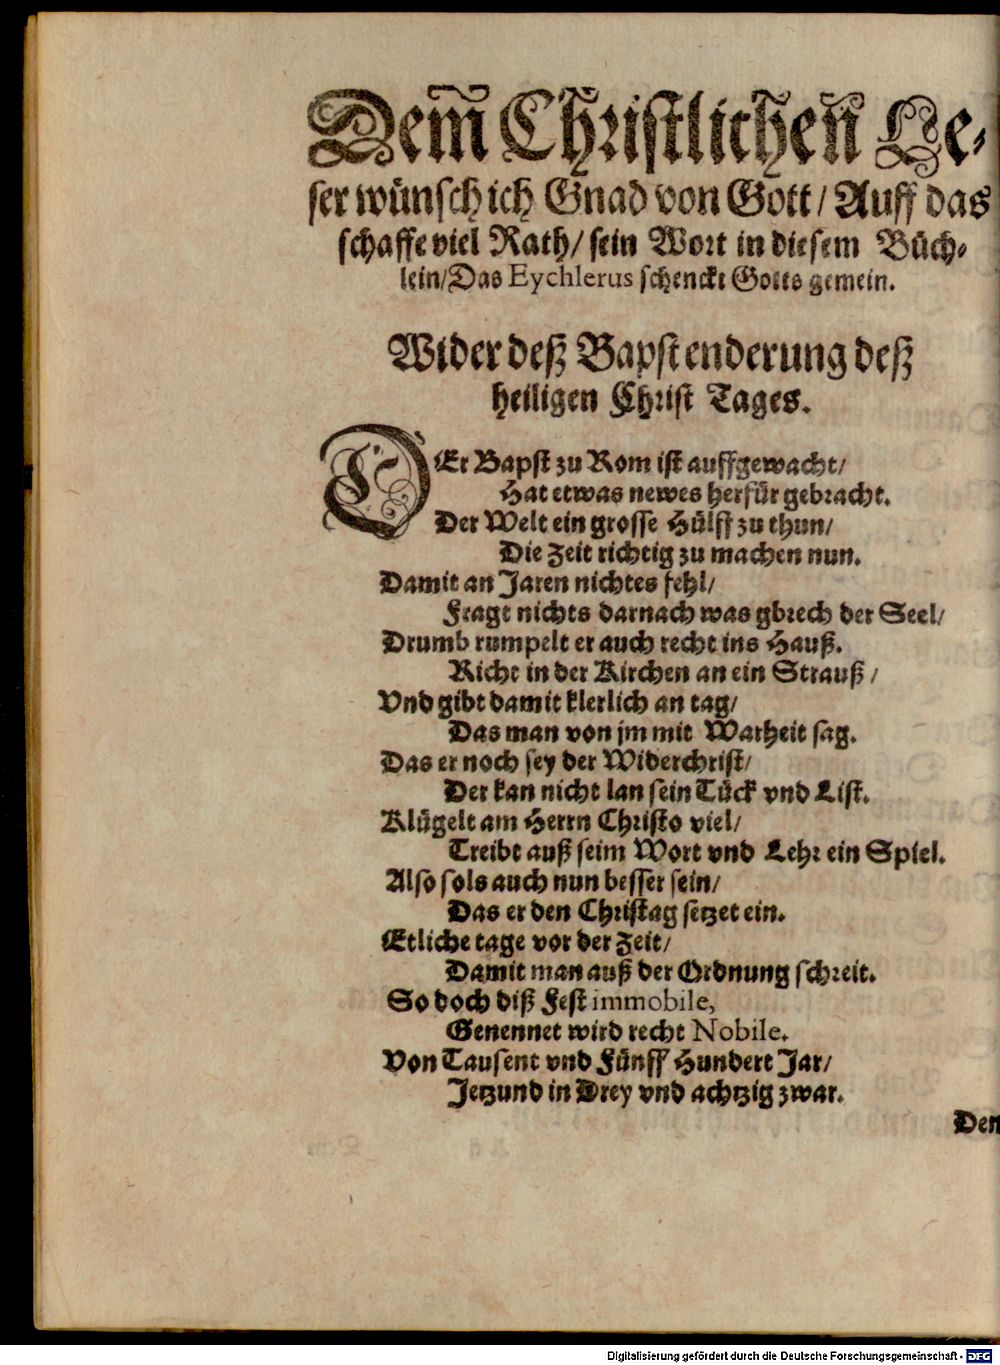 Dem Christlichen Le-
ser wünsch ich Gnad von Gott/ Auff das
schaffe viel Rath/ sein Wort in diesem Büch-
lein/ Das Eychlerus schenckt Gotts gemein.
Wider deß Bapst enderung deß
heiligen Christ Tages.
DEr Bapst zu Rom ist auffgewacht/
Hat etwas newes herfür gebracht.
Der Welt ein grosse Hülff zu thun/
Die Zeit richtig zu machen nun.
Damit an Jaren nichtes fehl/
Fragt nichts darnach was gbrech der Seel/
Drumb rumpelt er auch recht ins Hauß.
Richt in der Kirchen an ein Strauß/
Vnd gibt damit klerlich an tag/
Das man von jm mit Warheit sag.
Das er noch sey der Widerchrist/
Der kan nicht lan sein Tück vnd List.
Klügelt am Herrn Christo viel/
Treibt auß seim Wort vnd Lehr ein Spiel.
Also sols auch nun besser sein/
Das er den Christag setzet ein.
Etliche tage vor der Zeit/
Damit man auß der Ordnung schreit.
So doch diß Fest immobile,
Genennet wird recht Nobile.
Von Tausent vnd Fünff Hundert Jar/
Jetzund in Drey vnd achtzig zwar.
Den
Digitalisierung gefördert durch die Deutsche Forschungsgemeinschaft - DFG